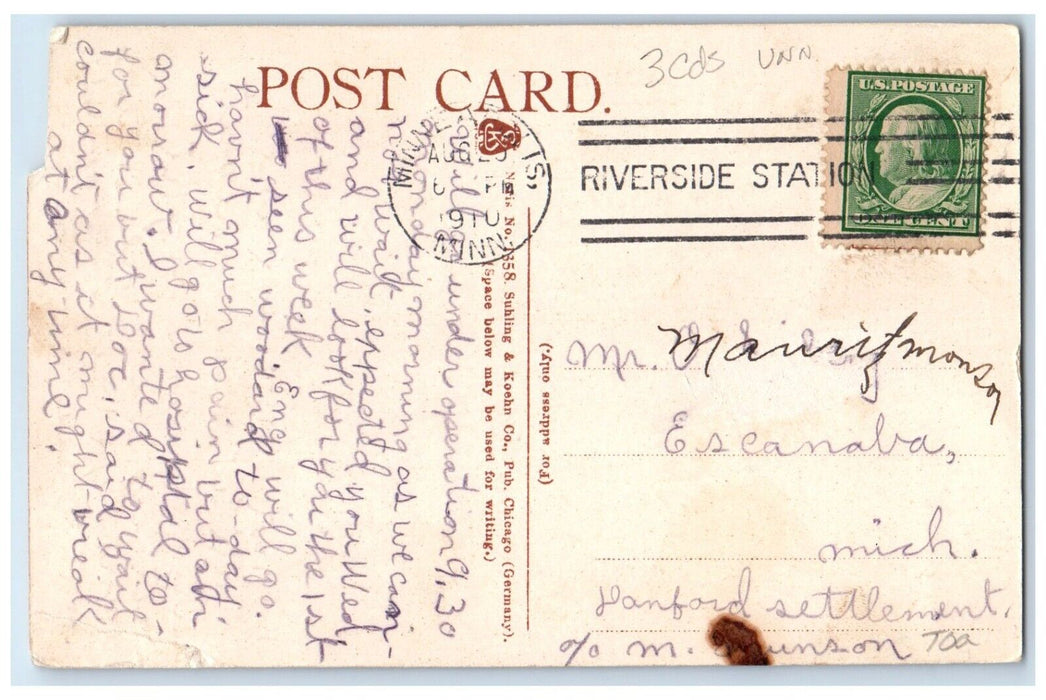 3 cds UNN.
POST CARD.
U.S. POSTAGE
ONE CENT
MINNEAPOLIS,
AUG 25
PM
1910
MINN.
RIVERSIDE STATION
No. 358. Suhling & Koehn Co., Pub. Chicago (Germany).
Space below may be used for writing.)
(For address only.)
Will under operation 9.30
monday morning as we can-
not wait, expected you Wed.
and will look for you the 1st
of this week Eng will go.
seen woodard to-day
havn't much pain but am
sick. will go to hospital to-
morrow. I wanted to wait
for you but Doc, said
couldn't as it might break
at any time.
Mr.
Mauritz monson
Escanaba,
Mich.
Danford settlement.
c/o M. Munson